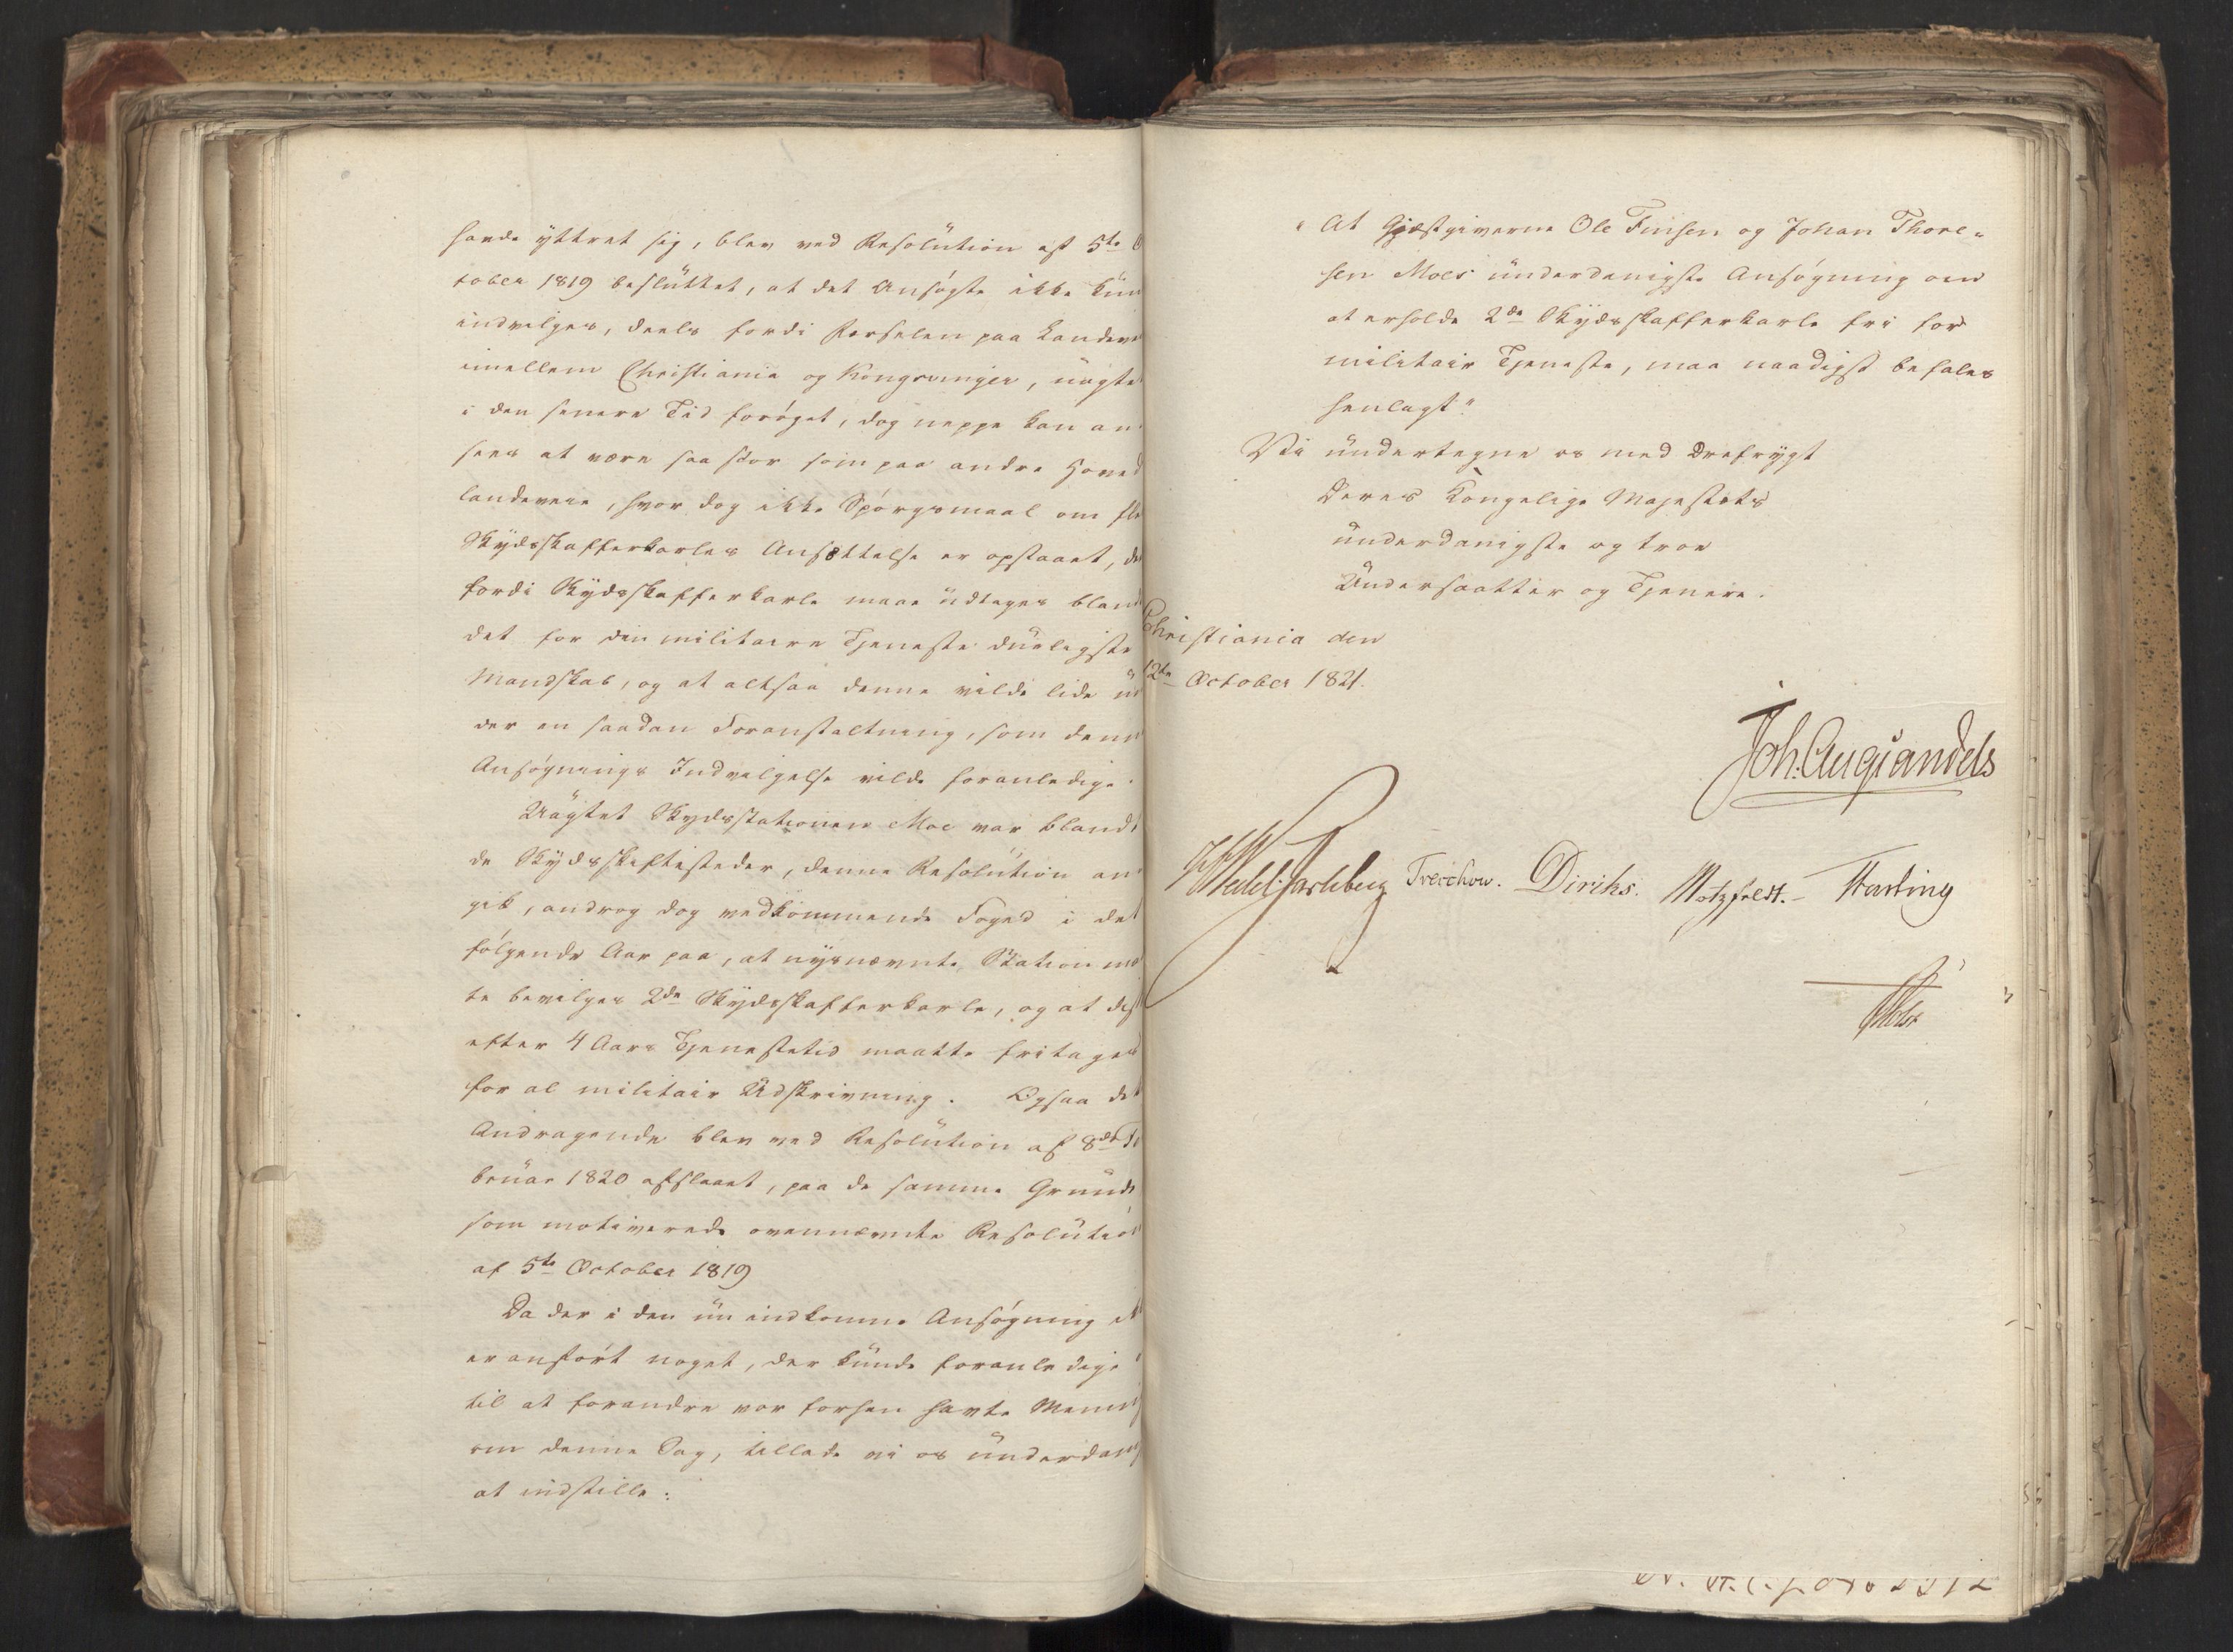 havde yttret sig, blev ved Resolution af 5te O
tober 1819 besluttet, at det Ansøgte ikke kun
indvilges, deels fordi Færselen paa Landeve
imellem Christiania og Kongsvinger, uagte
i den senere Tid forøget, dog neppe kan an
sees at være saa stor som paa andre Hoved
landeveie, hvor dog ikke Spørgsmaal om fle
Skydsskafferkarles Ansættelse er opstaaet, de
fordi Skydsskafferkarle maae udtages bland
det for den militaire Tjeneste dueligste
Mandskab, og at altsaa denne vilde lide un
der en saadan Foranstaltning, som denn
Ansøgnings Indvilgelse vilde foranledige.
Uagtet Skydsstationen Moe var blandt
de Skydsskiftesteder, denne Resolution an
gik, androg dog vedkommende Foged i det
følgende Aar paa, at nysnævnte Station maa
te bevilges 2de Skydsskafferkarle, og at diss
efter 4 Aars Tjenestetid maatte fritages
for al militair Udskrivning. Ogsaa det
Andragende blev ved Resolution af 8de Fe
bruar 1820 afslaaet, paa de samme Grunde
som motiverede ovennævnte Resolution
af 5te October 1819
Da der i den nu indkomne Ansøgning ik
er anført noget, der kunde foranledige
til at forandre vor forhen havte Mening
om denne Sag, tillade vi os underdanig
at indstille:
"At Gjæstgiverne Ole Finsen og Johan Thore-
sen Moes underdanigste Ansøgning om
at erholde 2de Skydsskafferkarle fri for
militair Tjeneste, maa naadigst befales
henlagt."
Vi undertegne os med Ærefrygt
Deres Kongelige Majestæts
underdanigste og troe
Undersaatter og Tjenere.
Christiania den
12te October 1821.
Joh. Aug. Sandels
Wedel-Jarlsberg Treschow. Diriks. Motzfeldt. Hasting
Holst